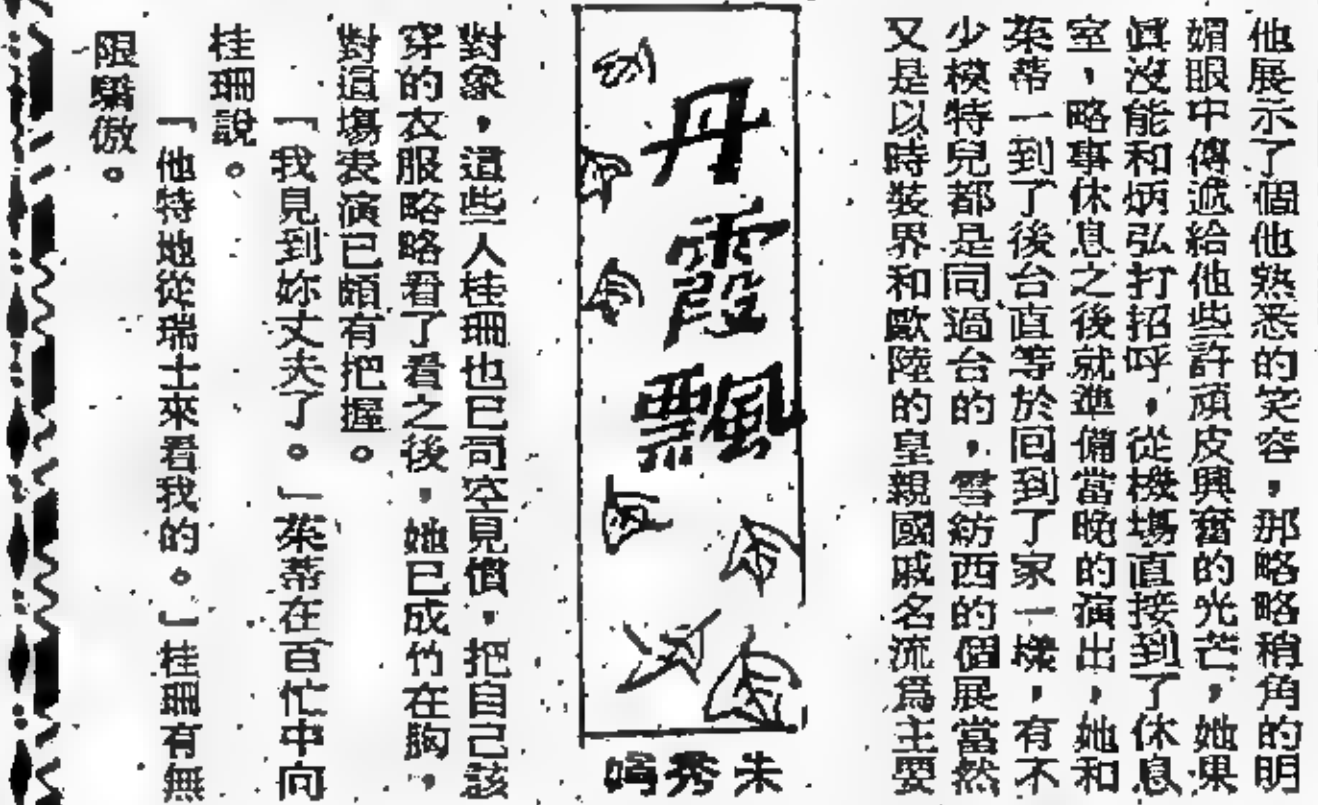 他展示了個他熟悉的笑容，那略略稍角的明
媚眼中傳遞給他些許頑皮興奮的光芒，她果
眞沒能和炳弘打招呼，從機場直接到了休息
室，略事休息之後就準備當晚的演出，她和
茱蒂一到了後台直等於回到了家一樣，有不
少模特兒都是同過台的，雪紡西的個展當然
又是以時裝界和歐陸的皇親國戚名流爲主要
丹霞飄
朱秀娟
對象，這些人桂珊也已司空見慣，把自己該
穿的衣服略略看了看之後，她已成竹在胸，
對這場表演已頗有把握。
「我見到妳丈夫了。」茱蒂在百忙中向
桂珊說。
「他特地從瑞士來看我的。」桂珊有無
限驕傲。